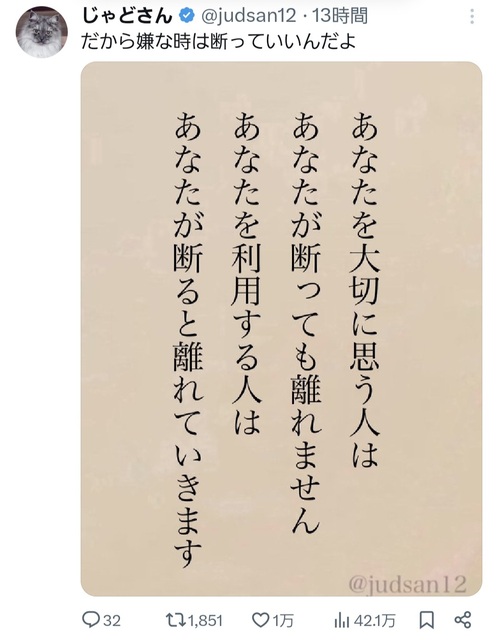 じゃどさん @judsan12・13時間
だから嫌な時は断っていいんだよ
あなたを大切に思う人は
あなたが断っても離れません
あなたを利用する人は
あなたが断ると離れていきます
@judsan12
32 1,851 1万 42.1万